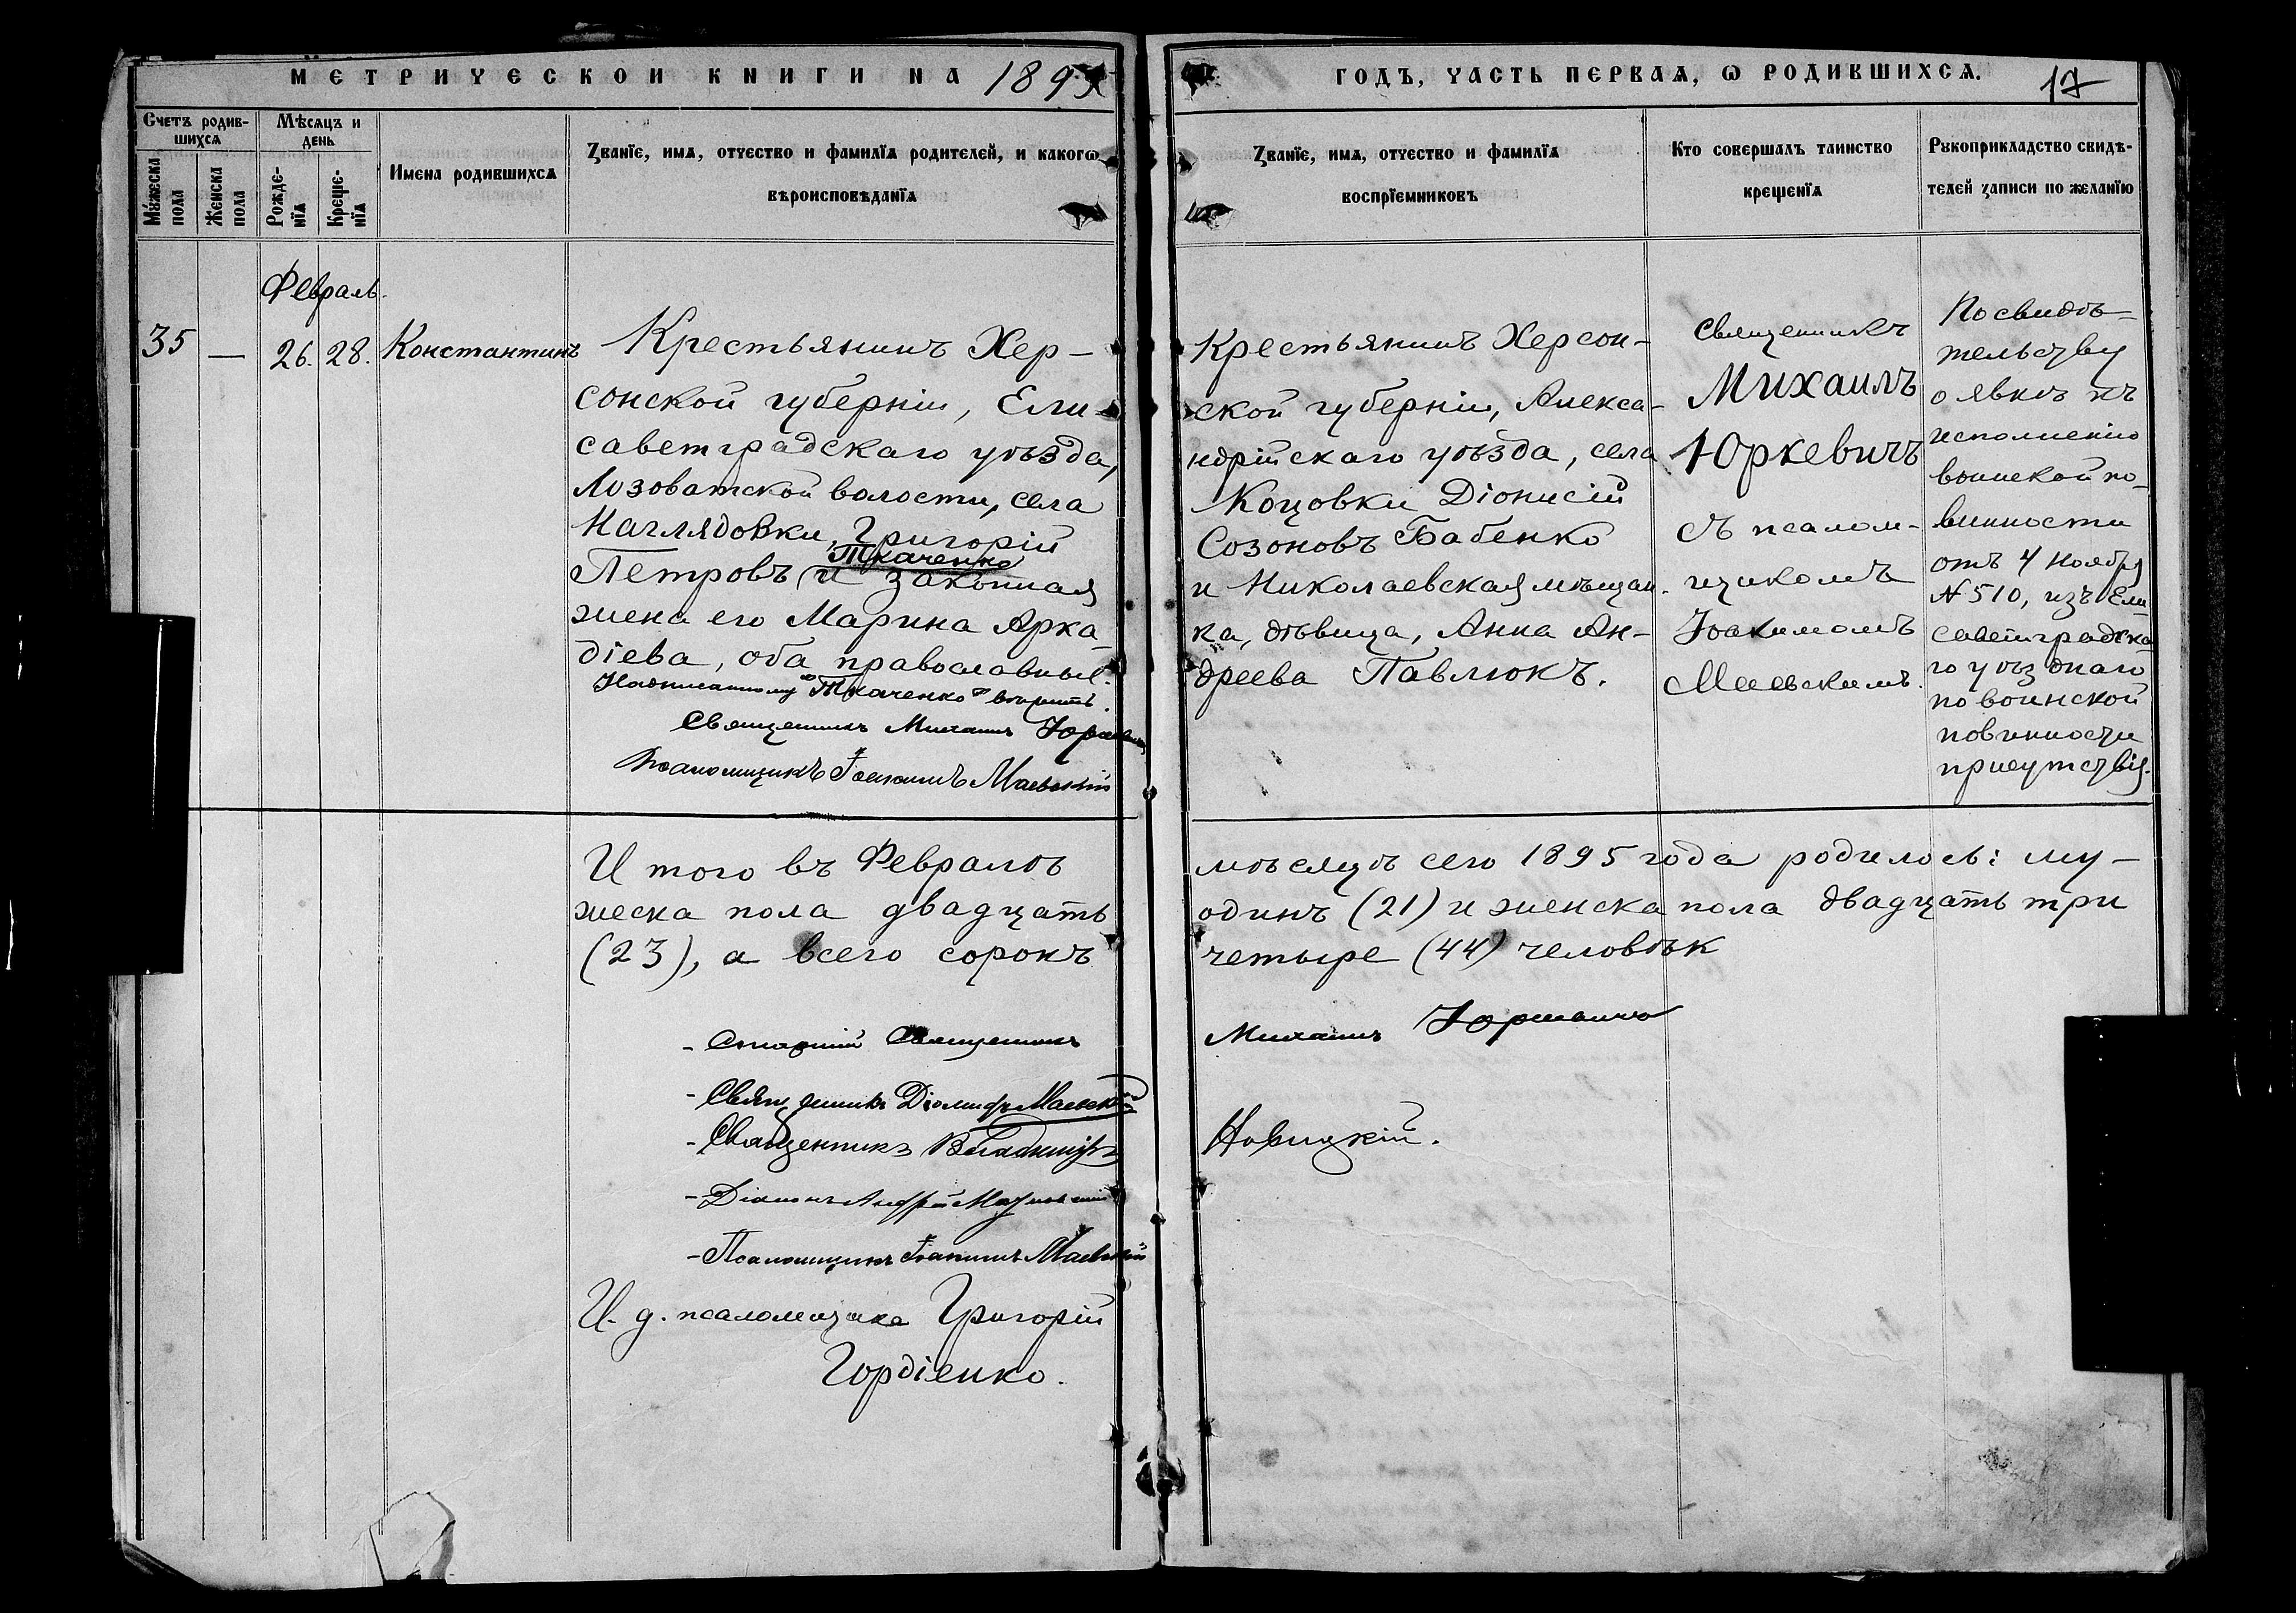 МЕТРИЧЕСКОЙ КНИГИ НА 1895
ГОДЪ, ЧАСТЬ ПЕРВАЯ, Ѡ РОДИВШИХСЯ.
17
Счетъ родив-
шихся
Мꙋжеска
пола
Женска
пола
Мѣсяцъ и
день
Рожде-
нїя
Креще-
нїя
Имена родившихся
Званїе, имя, отчество и фамилїя родителей, и какогѡ
вѣроисповѣданїя
Званїе, имя, отчество и фамилїя
воспрїемниковъ
Кто совершалъ таинство
крещенїя
Рꙋкоприкладство свидѣ-
телей записи по желанїю
Февраль.
35
—
26.
28.
Константинъ
Крестьянинъ Хер-
сонской губерніи, Ели-
саветградскаго уѣзда,
Лозоватской волости, села
Наглядовки, Григорій
Ткаченко
Петровъ и законная
жена его Марина Арка-
діева, оба православные.
Надписанному „Ткаченко" вѣрить.
Священникъ Михаилъ Юркевичъ
Псаломщикъ Іоакимъ Маевскій
Крестьянинъ Херсон-
ской губерніи, Алекса-
ндрійскаго уѣзда, села
Коцовки Діонисій
Созоновъ Бабенко
и Николаевская мѣщан-
ка, дѣвица, Анна Ан-
дреева Павлюкъ.
Священникъ
Михаилъ
Юркевичъ
съ псалом-
щикомъ
Іоакимомъ
Маевскимъ.
По свидѣ-
тельству
о явкѣ къ
исполненію
воинской по-
винности
отъ 4 Ноября
№ 510, изъ Ели-
саветградска-
го уѣзднаго
по воинской
повинности
присутствія.
И того въ Февралѣ
мѣсяцѣ сего 1895 года родилось: му-
жеска пола двадцать
одинъ (21) и женска пола двадцать три
(23), а всего сорокъ
четыре (44) человѣк
- Старшій Священникъ
Михаилъ Юркевичъ
- Священникъ Діомидъ Маевскій
- Священникъ Владиміръ
Новицкій.
- Діаконъ Андрей
- Псаломщикъ Іоакимъ Маевскій
И. д. псаломщика Григорій
Гордіенко.